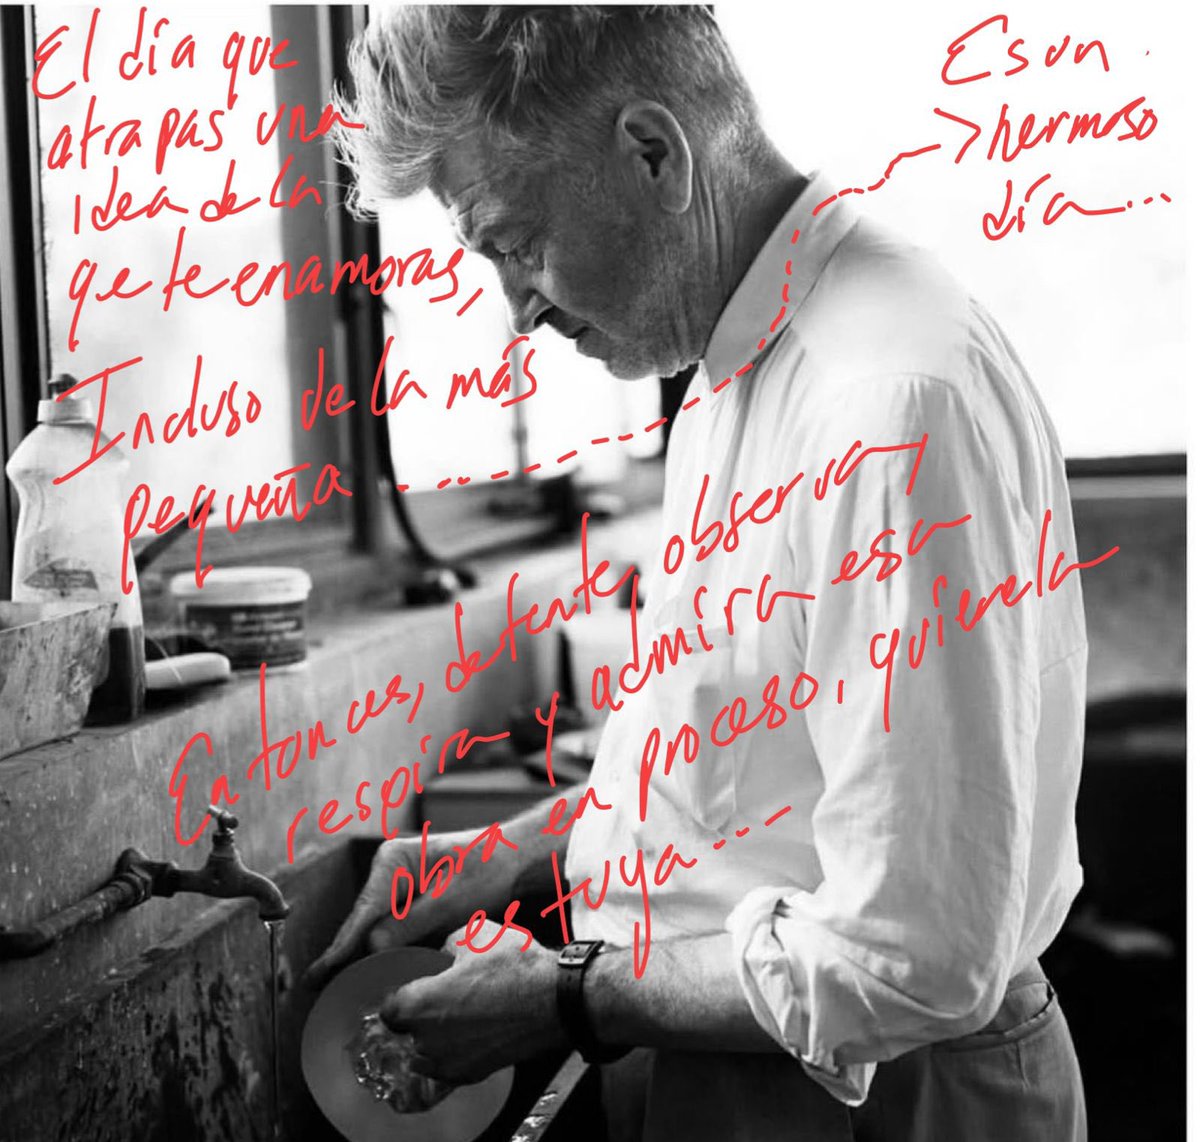 El día que
atrapas una
idea de la
qe te enamoras,
Incluso de la más
pequeña
Es un
hermoso
día...
Entonces, detente, observa,
respira y admira esa
obra en proceso, quierela
es tuya...